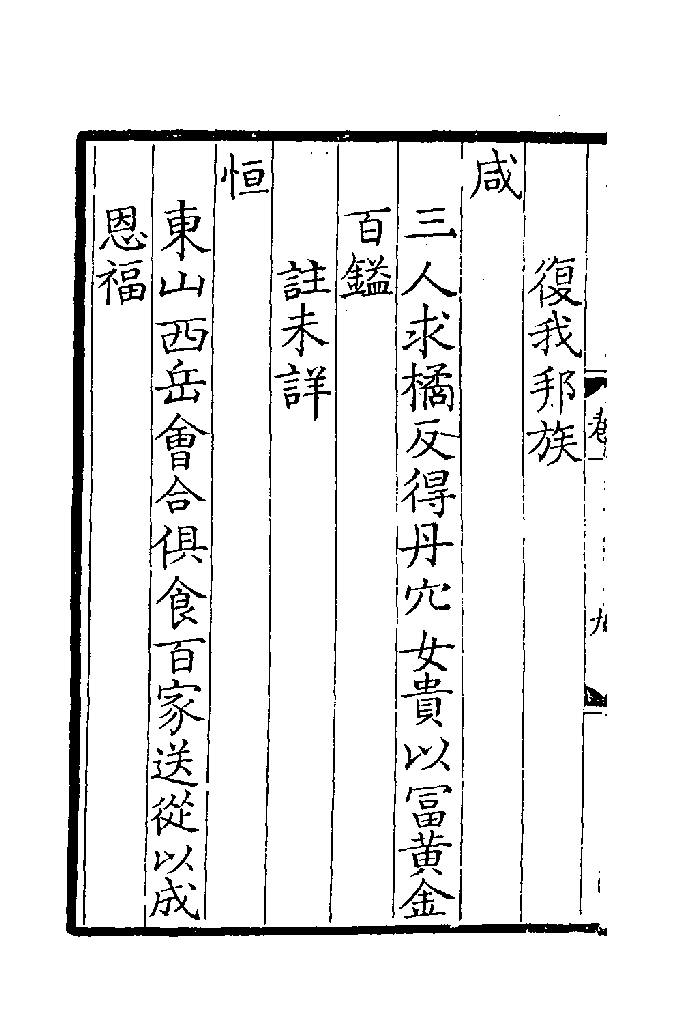 復我邦族
咸
三人求橘反得丹穴女貴以冨黄金
百鎰
註未詳
恒
東山西岳會合俱食百家送從以成
恩福